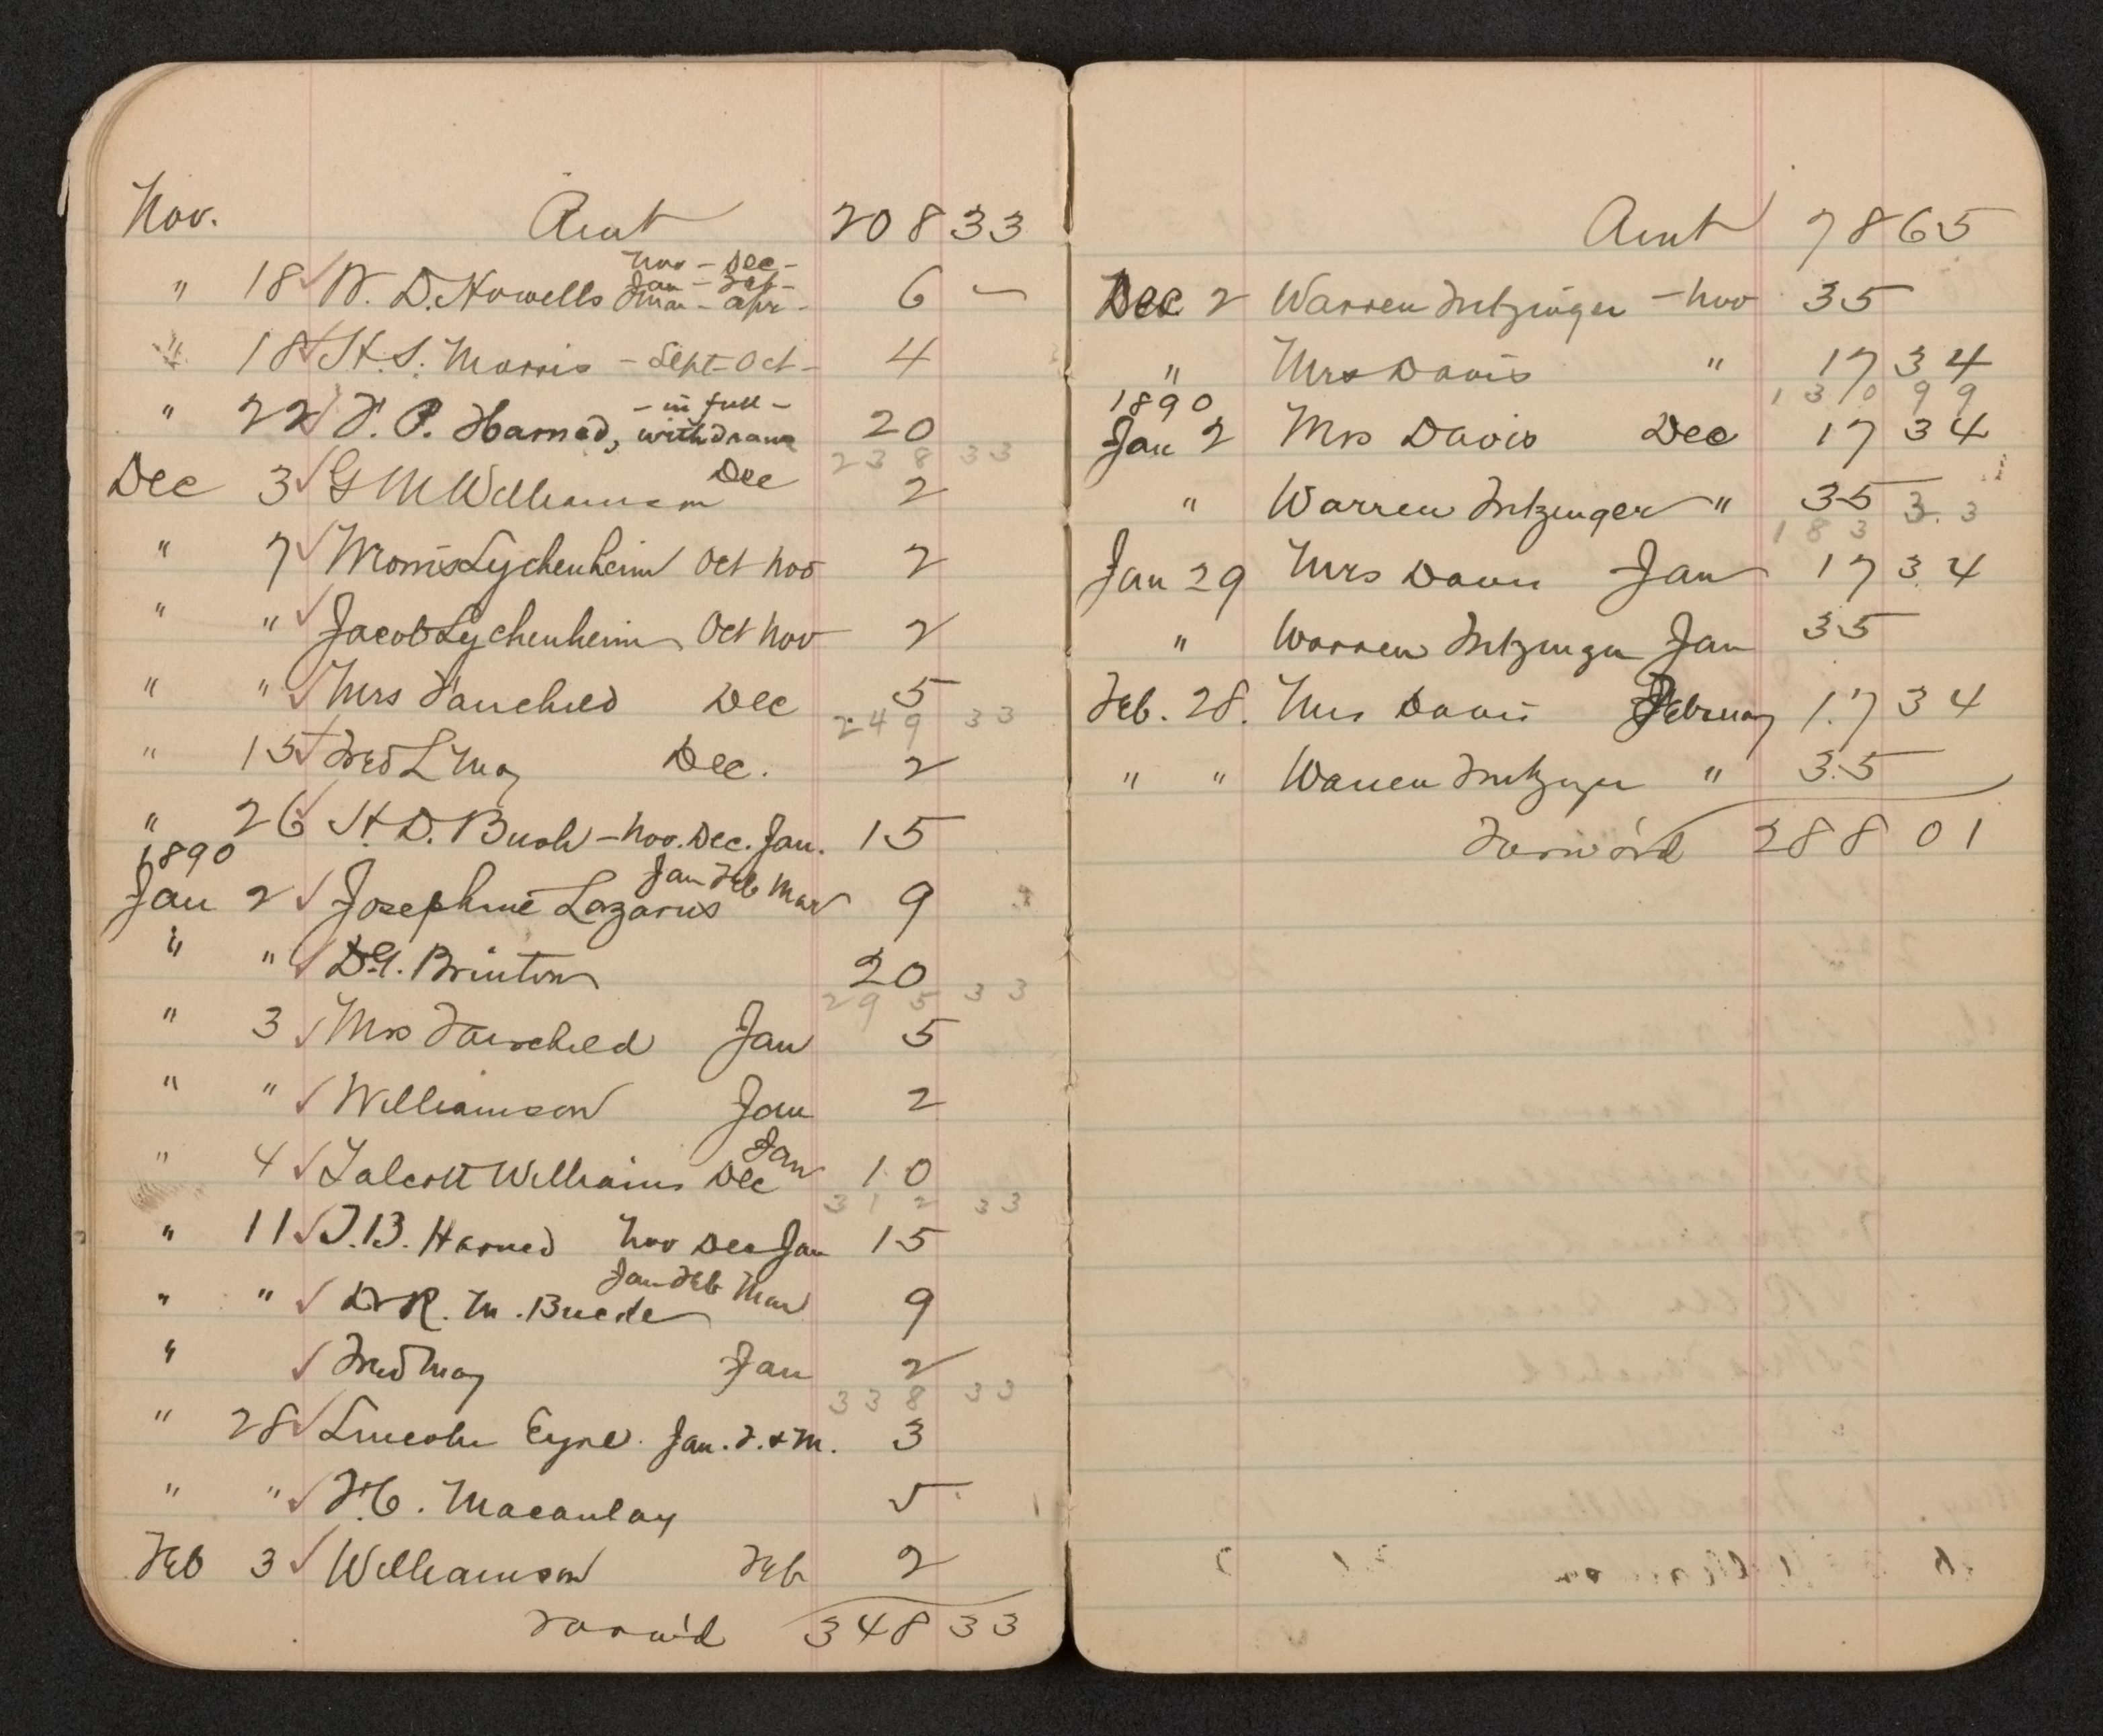 Nov. Amt 208 33
" 18 ✓ W. D. Howells Nov - Dec - Jan - Feb - Mar - Apr - 6 —
" 18 ✓ H. S. Morris - Sept - Oct - 4
" 22 ✓ F. P. Harned, - in full - withdrawn 20
238 33
Dec 3 ✓ G M Williamson Dec 2
" 7 ✓ Morris Lychenheim Oct Nov 2
" " ✓ Jacob Lychenheim Oct Nov 2
" " ✓ Mrs Fairchild Dec 5
249 33
" 15 ✓ Fred L May Dec. 2
" 26 ✓ H. D. Bush - Nov. Dec. Jan. 15
1890
Jan 2 ✓ Josephine Lazarus Jan Feb Mar 9
" " ✓ D.G. Brinton 20
295 33
" 3 ✓ Mrs Fairchild Jan 5
" " ✓ Williamson Jan 2
" 4 ✓ Talcott Williams Dec Jan 10
312 33
" 11 ✓ T.B. Harned Nov Dec Jan 15
" " ✓ Dr R. M. Bucke Jan Feb Mar 9
" ✓ Fred May Jan 2
338 33
" 28 ✓ Lincoln Eyre. Jan. F. & M. 3
" " ✓ Macaulay 5
Feb 3 ✓ Williamson Feb 2
Forw'd 348 33
Amt 78 65
Dec 2 Warren Fritzinger - Nov 35
" Mrs Davis " 17 34
130 99
1890
Jan 2 Mrs Davis Dec 17 34
" Warren Fritzinger " 35
183 33
Jan 29 Mrs Davis Jan 17 34
" Warren Fritzinger Jan 35
Feb. 28. Mrs Davis February 17 34
" " Warren Fritzinger " 35
Forw'd 288 01